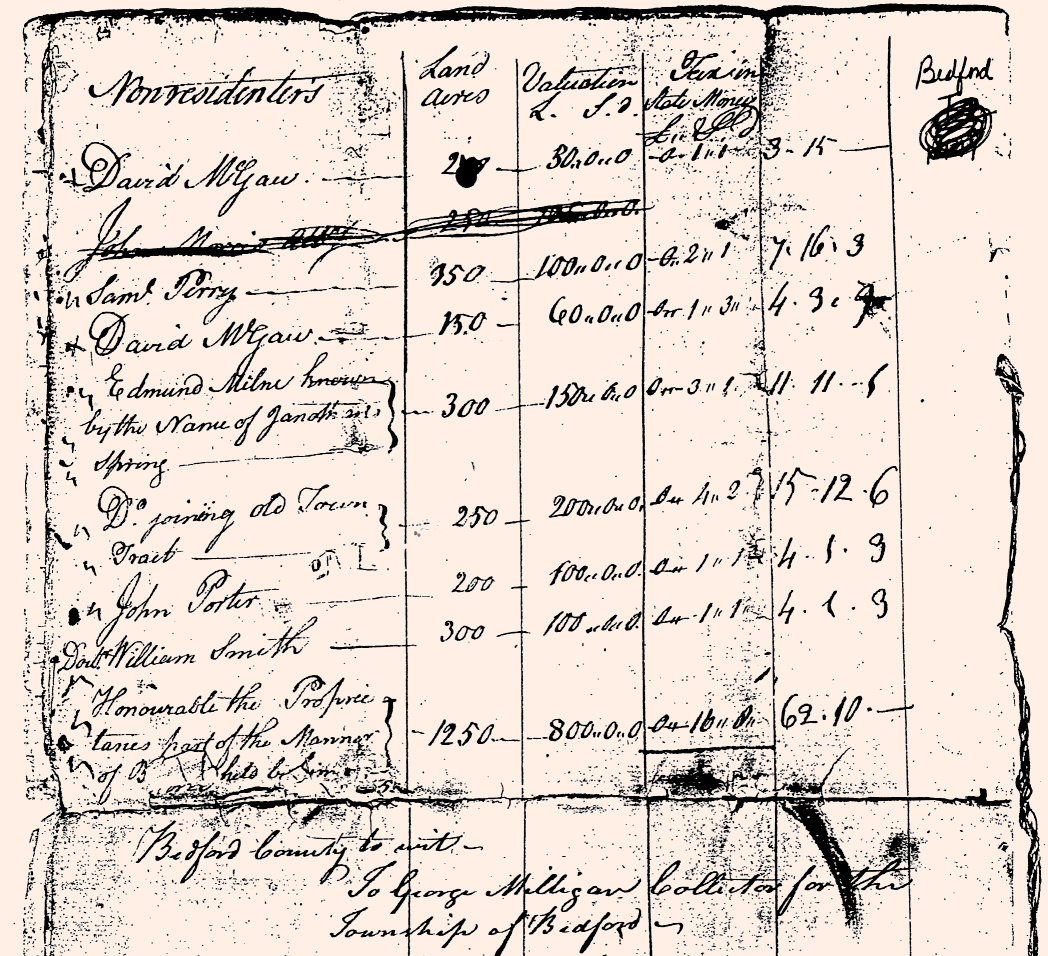 Nonresidenters Land acres Valuation L. S. d. Tax in State Money Bedford
David McGaw 30,,0,,0 0,,1,,1 3-15
250
Saml. Perry 350 100,,0,,0 0,,2,,1 7.16.3
David McGaw 150 60,,0,,0 0,,1,,3 4.3.9
,, Edmund Milne known
by the Name of 300 150,,0,,0 0,,3,,1 11.11.
,, Spring
,, Do. joining old Town 250 200,,0,,0 0,,4,,2 15.12.6
,, Tract
,, John Porter 200 100,,0,,0 0,,1,,1 4.1.3
William Smith 300 100,,0,,0 0,,1,,1 4.1.3
,, Honourable the Proprie
taries part of the Mannor 1250 800,,0,,0 0,,16,,8 62.10
of B
Bedford County to wit
To George Milligan Collector for the
Township of Bedford